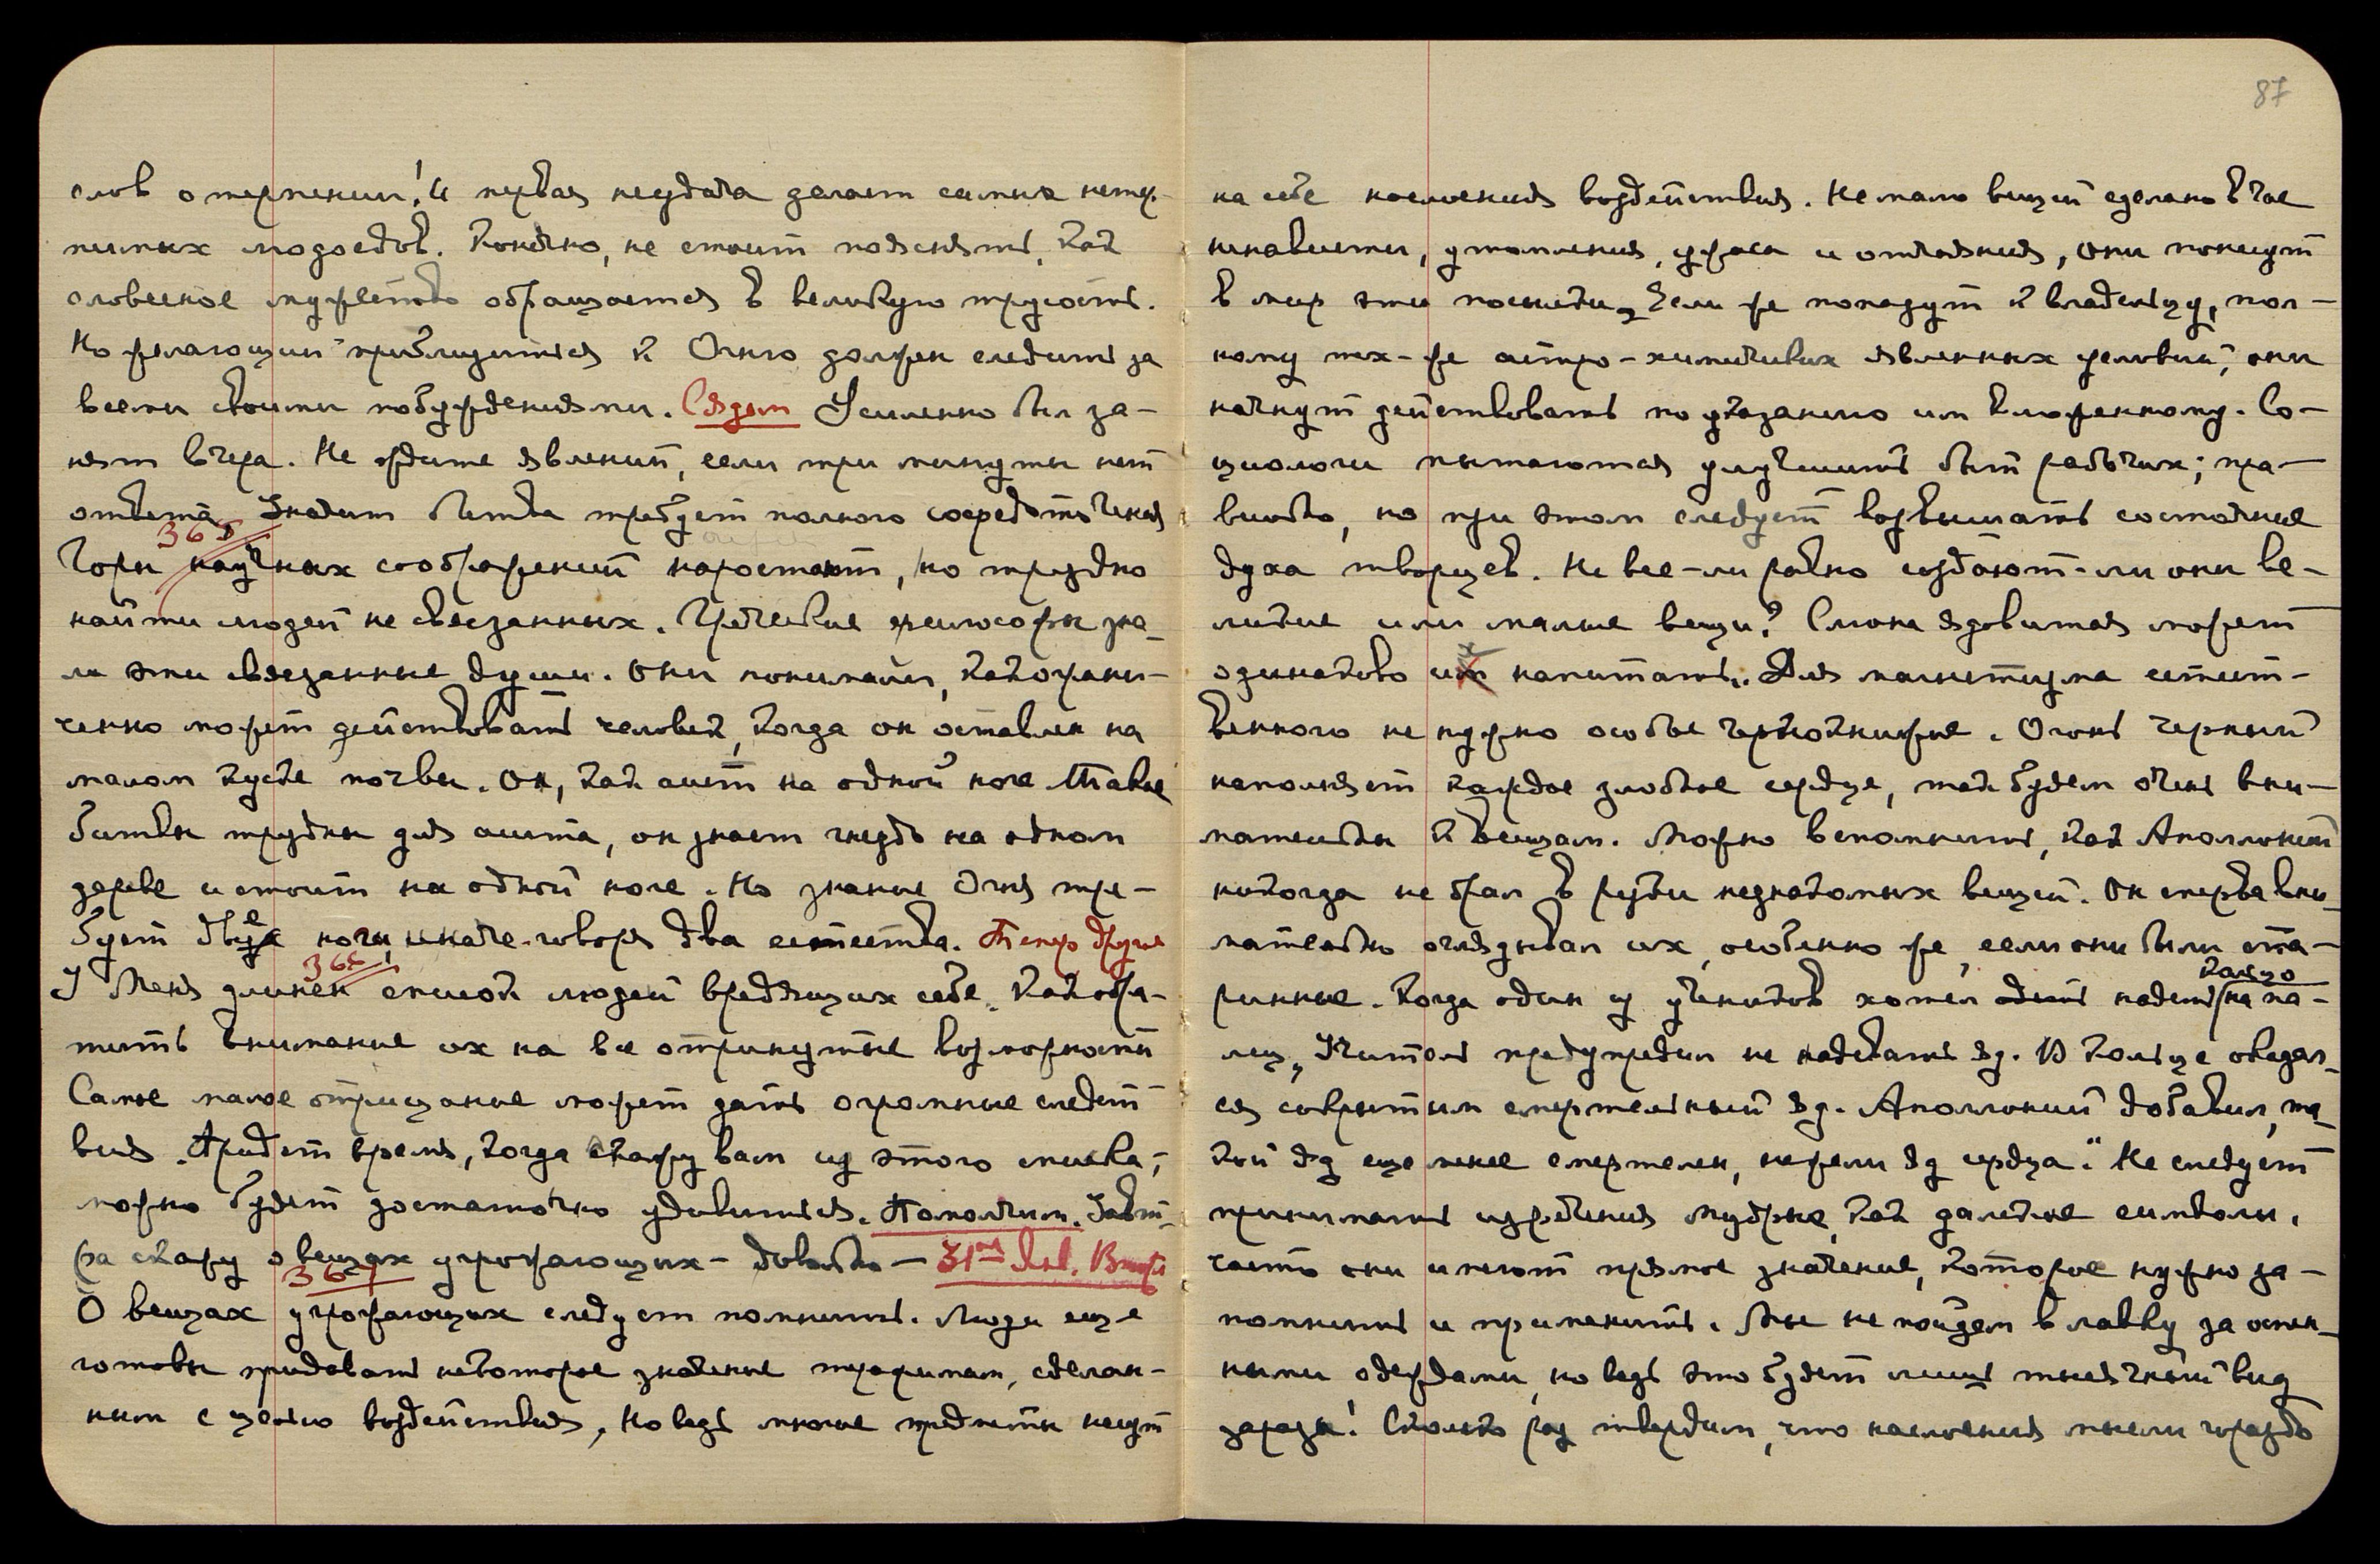 слов о терпении! И первая неудача делает самих нетер-
пимых людоедов. Конечно, не стоит пояснять, как
словесное мужество обращается в великую трусость.
Но желающий приблизиться к Огню должен следить за
всеми своими побуждениями. Сядем Усиленно был за-
нят вчера. Не ждите явлений, если три минуты нет
ответа. Значит битва требует полного сосредоточения
365
Горы научных соображений наростают, но трудно
найти людей не связанных. Греческие философы зна-
ли эти связанные души. Они понимали, как ограни-
ченно может действовать человек, когда он оставлен на
малом куске почвы. Он, как аист на одной ноге. Такие
битвы трудны для аиста, он знает гнездо на одном
дереве и стоит на одной ноге. Но знание Огня тре-
бует две ноги, иначе говоря два естества. Теперь другое
366
У Меня длинен список людей вредящих себе. Как обра-
тить внимание их на все отринутые возможности
Самое малое отрицание может дать огромные следст
вия. Придет время, когда скажу вам из этого списка,
можно будет достаточно удивиться. Помолчим. Завт-
ра скажу о вещах угрожающих – довольно –
367
О вещах угрожающих следует помнить. Люди еще
готовы придавать некоторое значение терафимам, сделан-
ным с целью воздействия, Но ведь многие предметы несут
87
на себе наслоения воздействия. Не мало вещей сделано в час
ненависти, утомления, ужаса и отчаяния, они понесут
в мир эти посылки, Если же попадут к владельцу, пол-
ному тех-же астро-химических явленных условий, они
начнут действовать по указанию им вложенному. Со-
циологи пытаются улучшить быт рабочих; пра-
вильно, но при этом следует возвышать состояние
духа творцев. Не все-ли равно создают-ли они ве-
ликие или малые вещи? Слюна ядовитая может
одинаково их напитать. Для магнетизма естест-
венного не нужно особые чернокнижие. Огонь черный
наполняет каждое злобное сердце, так будем очень вни-
мательны к вещам. Можно вспомнить, как Аполлоний
никогда не брал в руки незнакомых вещей. Он сперва вни-
мательно оглядывал их, особенно же, если они были ста-
ринные. Когда один из учеников хотел одеть надеть кольцо на па-
лец, Учитель предупредил не надевать яд. В кольце оказал-
ся сокрытым смертельный яд. Аполлоний добавил, „та-
кой яд еще менее смертелен, нежели яд сердца." Не следует
принимать изречения мудрые, как далекие символы,
часто они имеют прямое значение, которое нужно за-
помнить и применить. Мы не пойдем в лавку за оспен-
ными одеждами, но ведь это будет лишь тысячный вид
заразы! Сколько раз твердим, что наслоения мысли гораздо